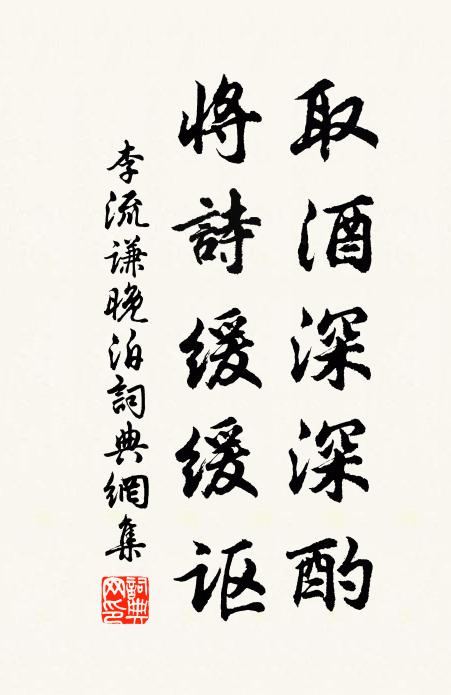 取酒深深酌
将詩緩緩讴
李流谦晚泊詞典網集
詞典网印